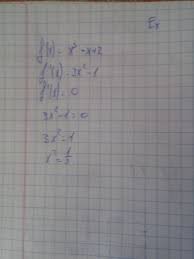 Ex
f(x) = x³ - x + 2
f'(x) = 3x² - 1
f'(x) = 0
3x² - 1 = 0
3x² = 1
x² = 1/3